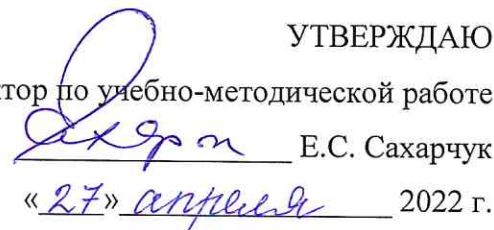 УТВЕРЖДАЮ
ктор по учебно-методической работе
Е.С. Сахарчук
«27» апреля 2022 г.